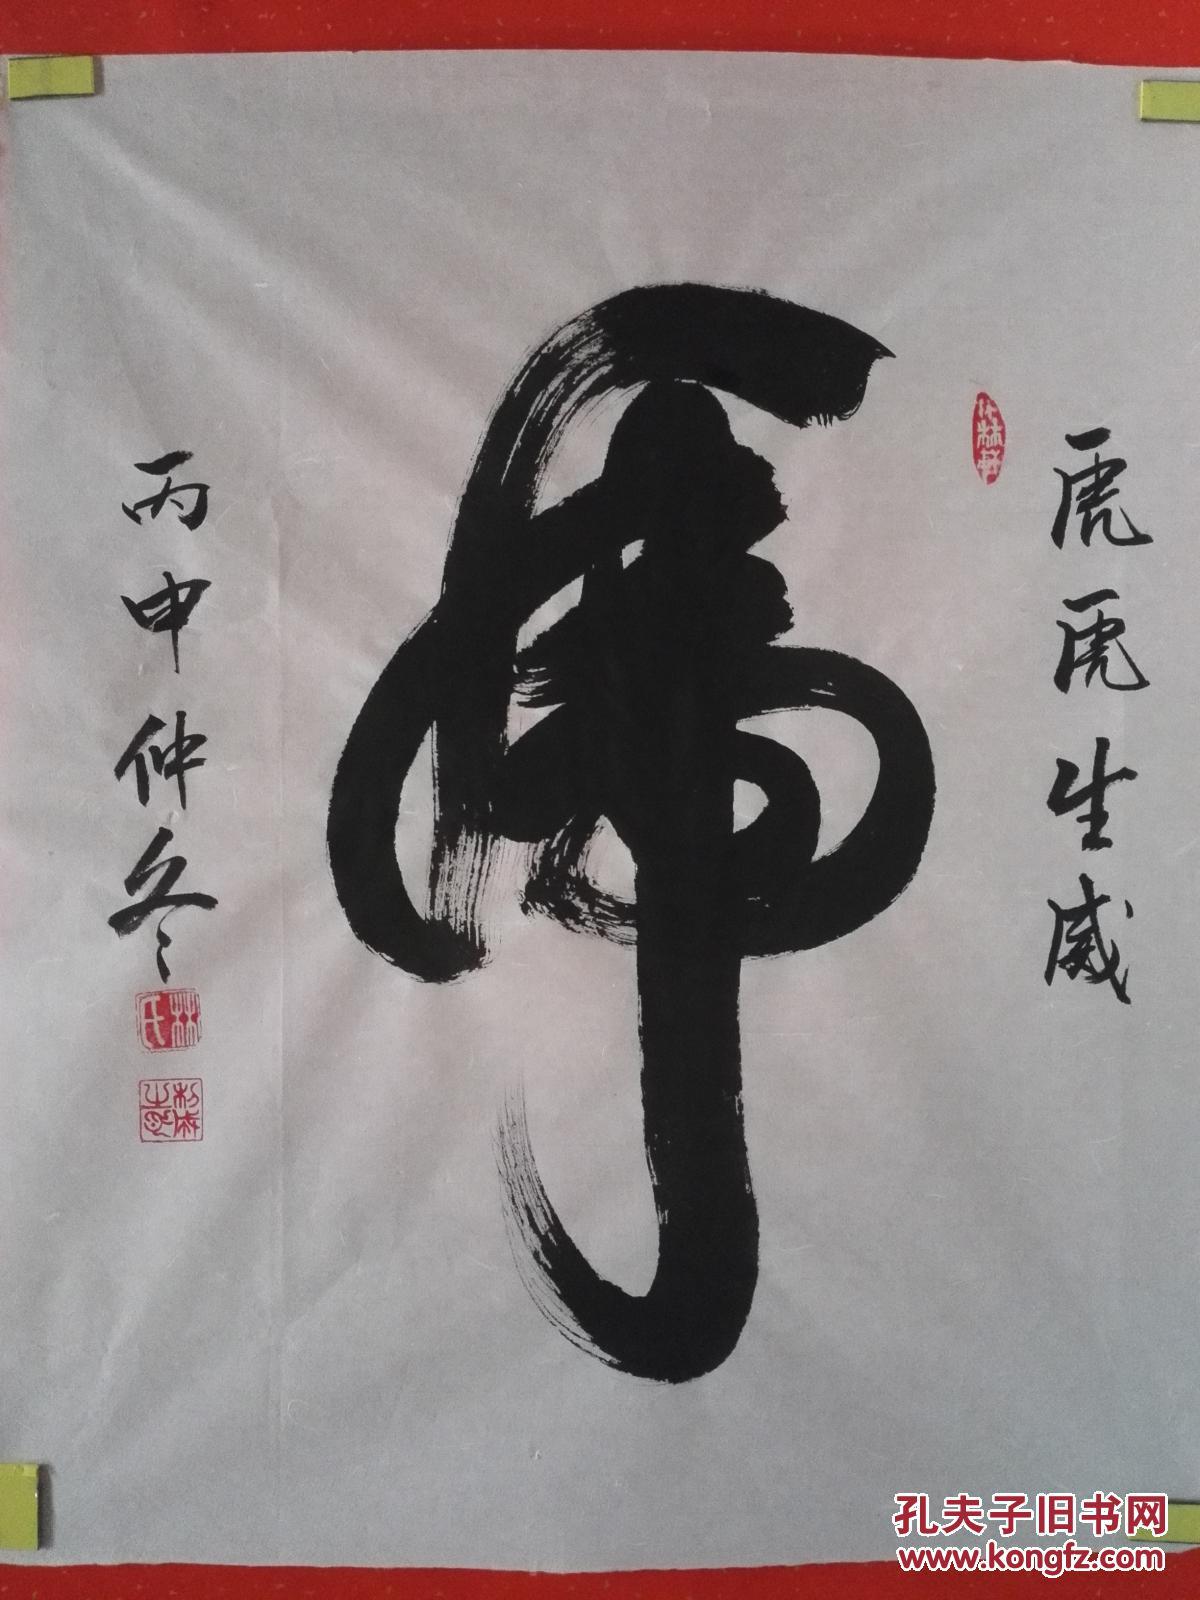 虎虎生威
虎
丙申仲冬
林氏
孔夫子旧书网
www.kongfz.com